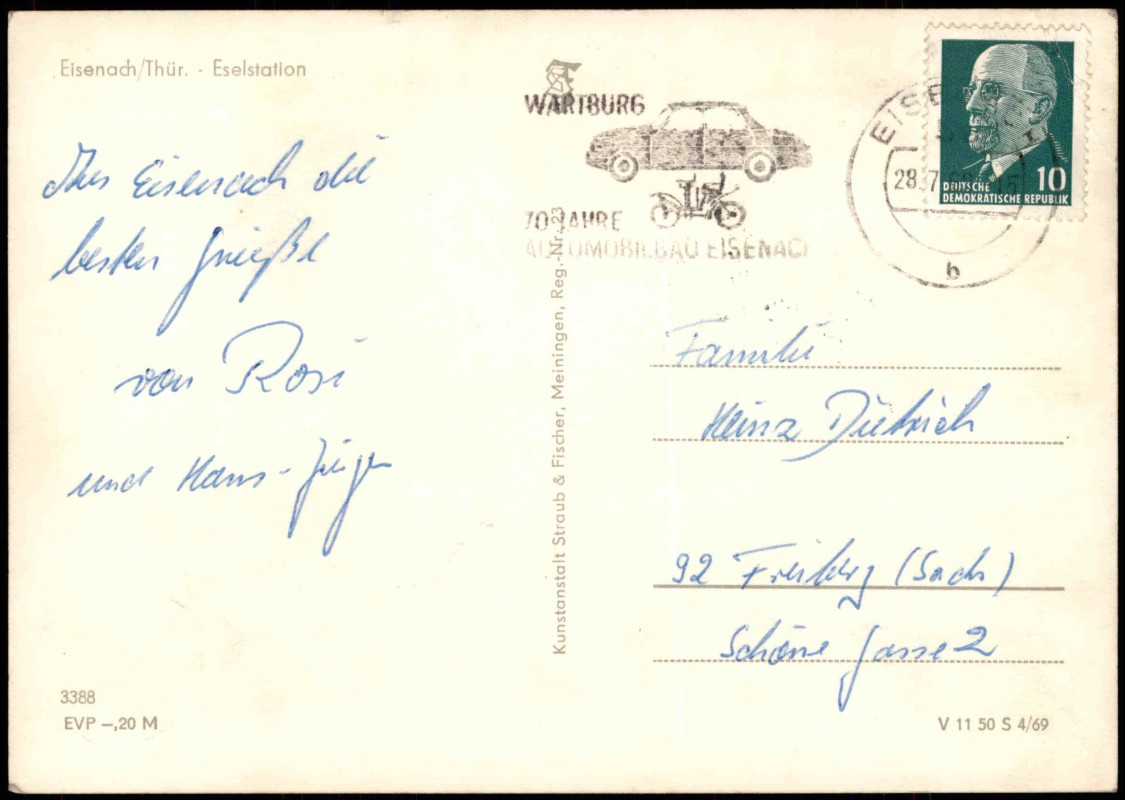 Eisenach/Thür. - Eselstation
WARTBURG
70 JAHRE
AUTOMOBILBAU EISENACH
EISE
28.7.
b
10
DEUTSCHE
DEMOKRATISCHE REPUBLIK
Aus Eisenach die
besten Grüße
von Rosi
und Hans-Jürgen
Kunstanstalt Straub & Fischer, Meiningen, Reg.-Nr. 23
Familie
Heinz Dietrich
92 Freiberg (Sachs)
Schöne Gasse 2
3388
EVP –,20 M
V 11 50 S 4/69